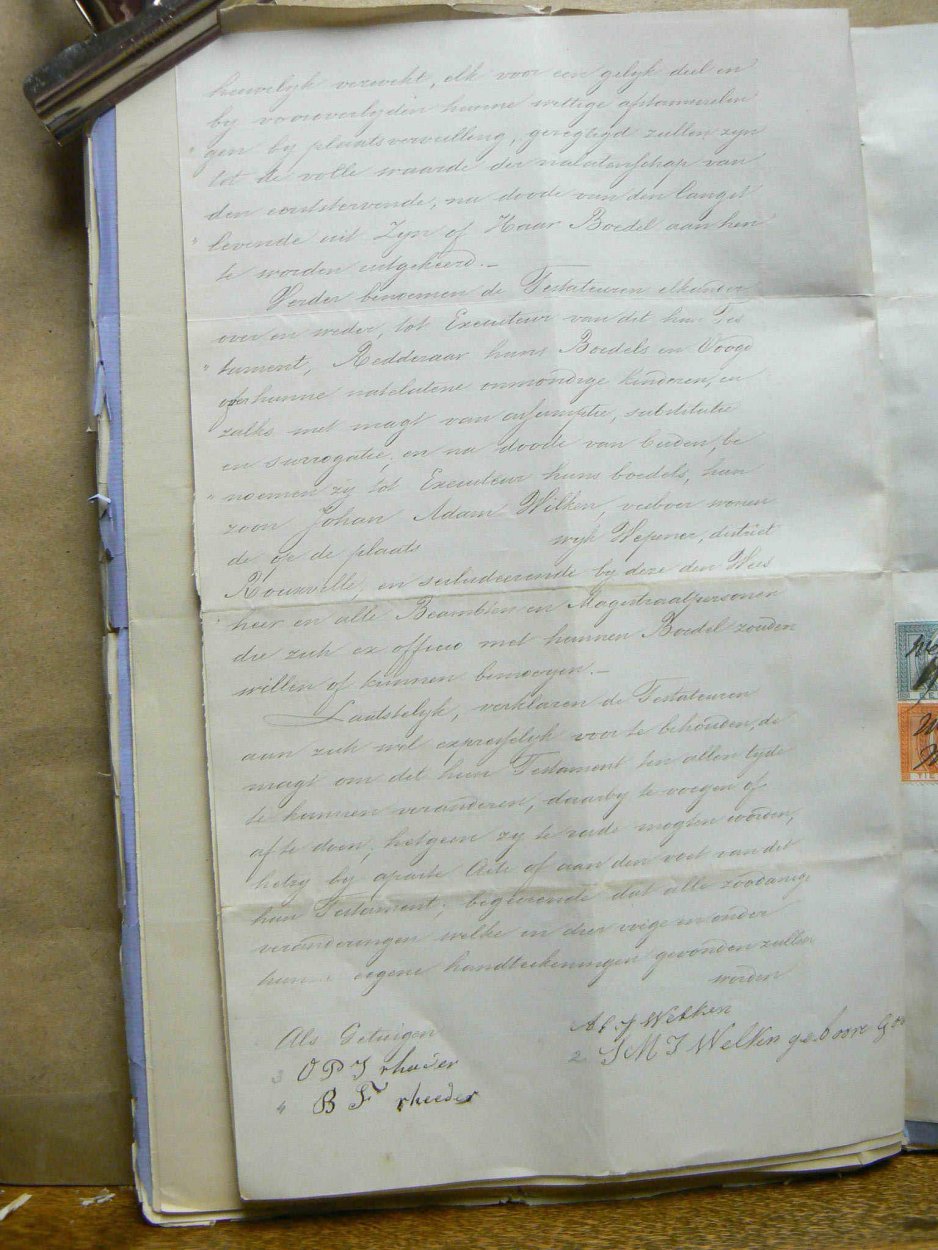 huwelyk verwekt, elk voor een gelyk deel en
by vooroverlyden hunne wettige afstammelin
gen by plaatsvervulling, geregtigd zullen zyn
tot de volle waarde der nalatenschap van
den eerststervende, na doode van den langst
levende uit Zyn of Haar Boedel aan hen
te worden uitgekeerd.—
Verder benoemen de Testateuren elkander
over en weder, tot Executeur van dit hun Tes
tament, Redderaar huns Boedels en Voogd
over hunne natelatene onmondige kinderen, en
zulks met magt van assumptie, substitutie
en surrogatie, en na doode van beiden, be
noemen zy tot Executeur huns boedels, hun
zoon Johan Adam Wilken, veeboer wonen
de op de plaats wyk Wepener, district
Rouxville, en secludeerende by deze den Wees
heer en alle Beambten en Magistraatpersonen
die zich ex officio met hunnen Boedel zouden
willen of kunnen bemoeyen.—
Laatstelyk, verklaren de Testateuren
aan zich wel expresselyk voor te behouden, de
magt om dit hun Testament ten allen tyde
te kunnen veranderen, daarby te voegen of
af te doen, hetgeen zy te rade mogten worden,
hetzy by aparte Acte of aan den voet van dit
hun Testament; begeerende dat alle zoodanige
veranderingen welke in dier voege en onder
hunne eigene handteekeningen gevonden zullen
worden
Als Getuigen
A. J Welken
2 S M J Welken geboore
3 O P J rheeder
4 B F rheeder